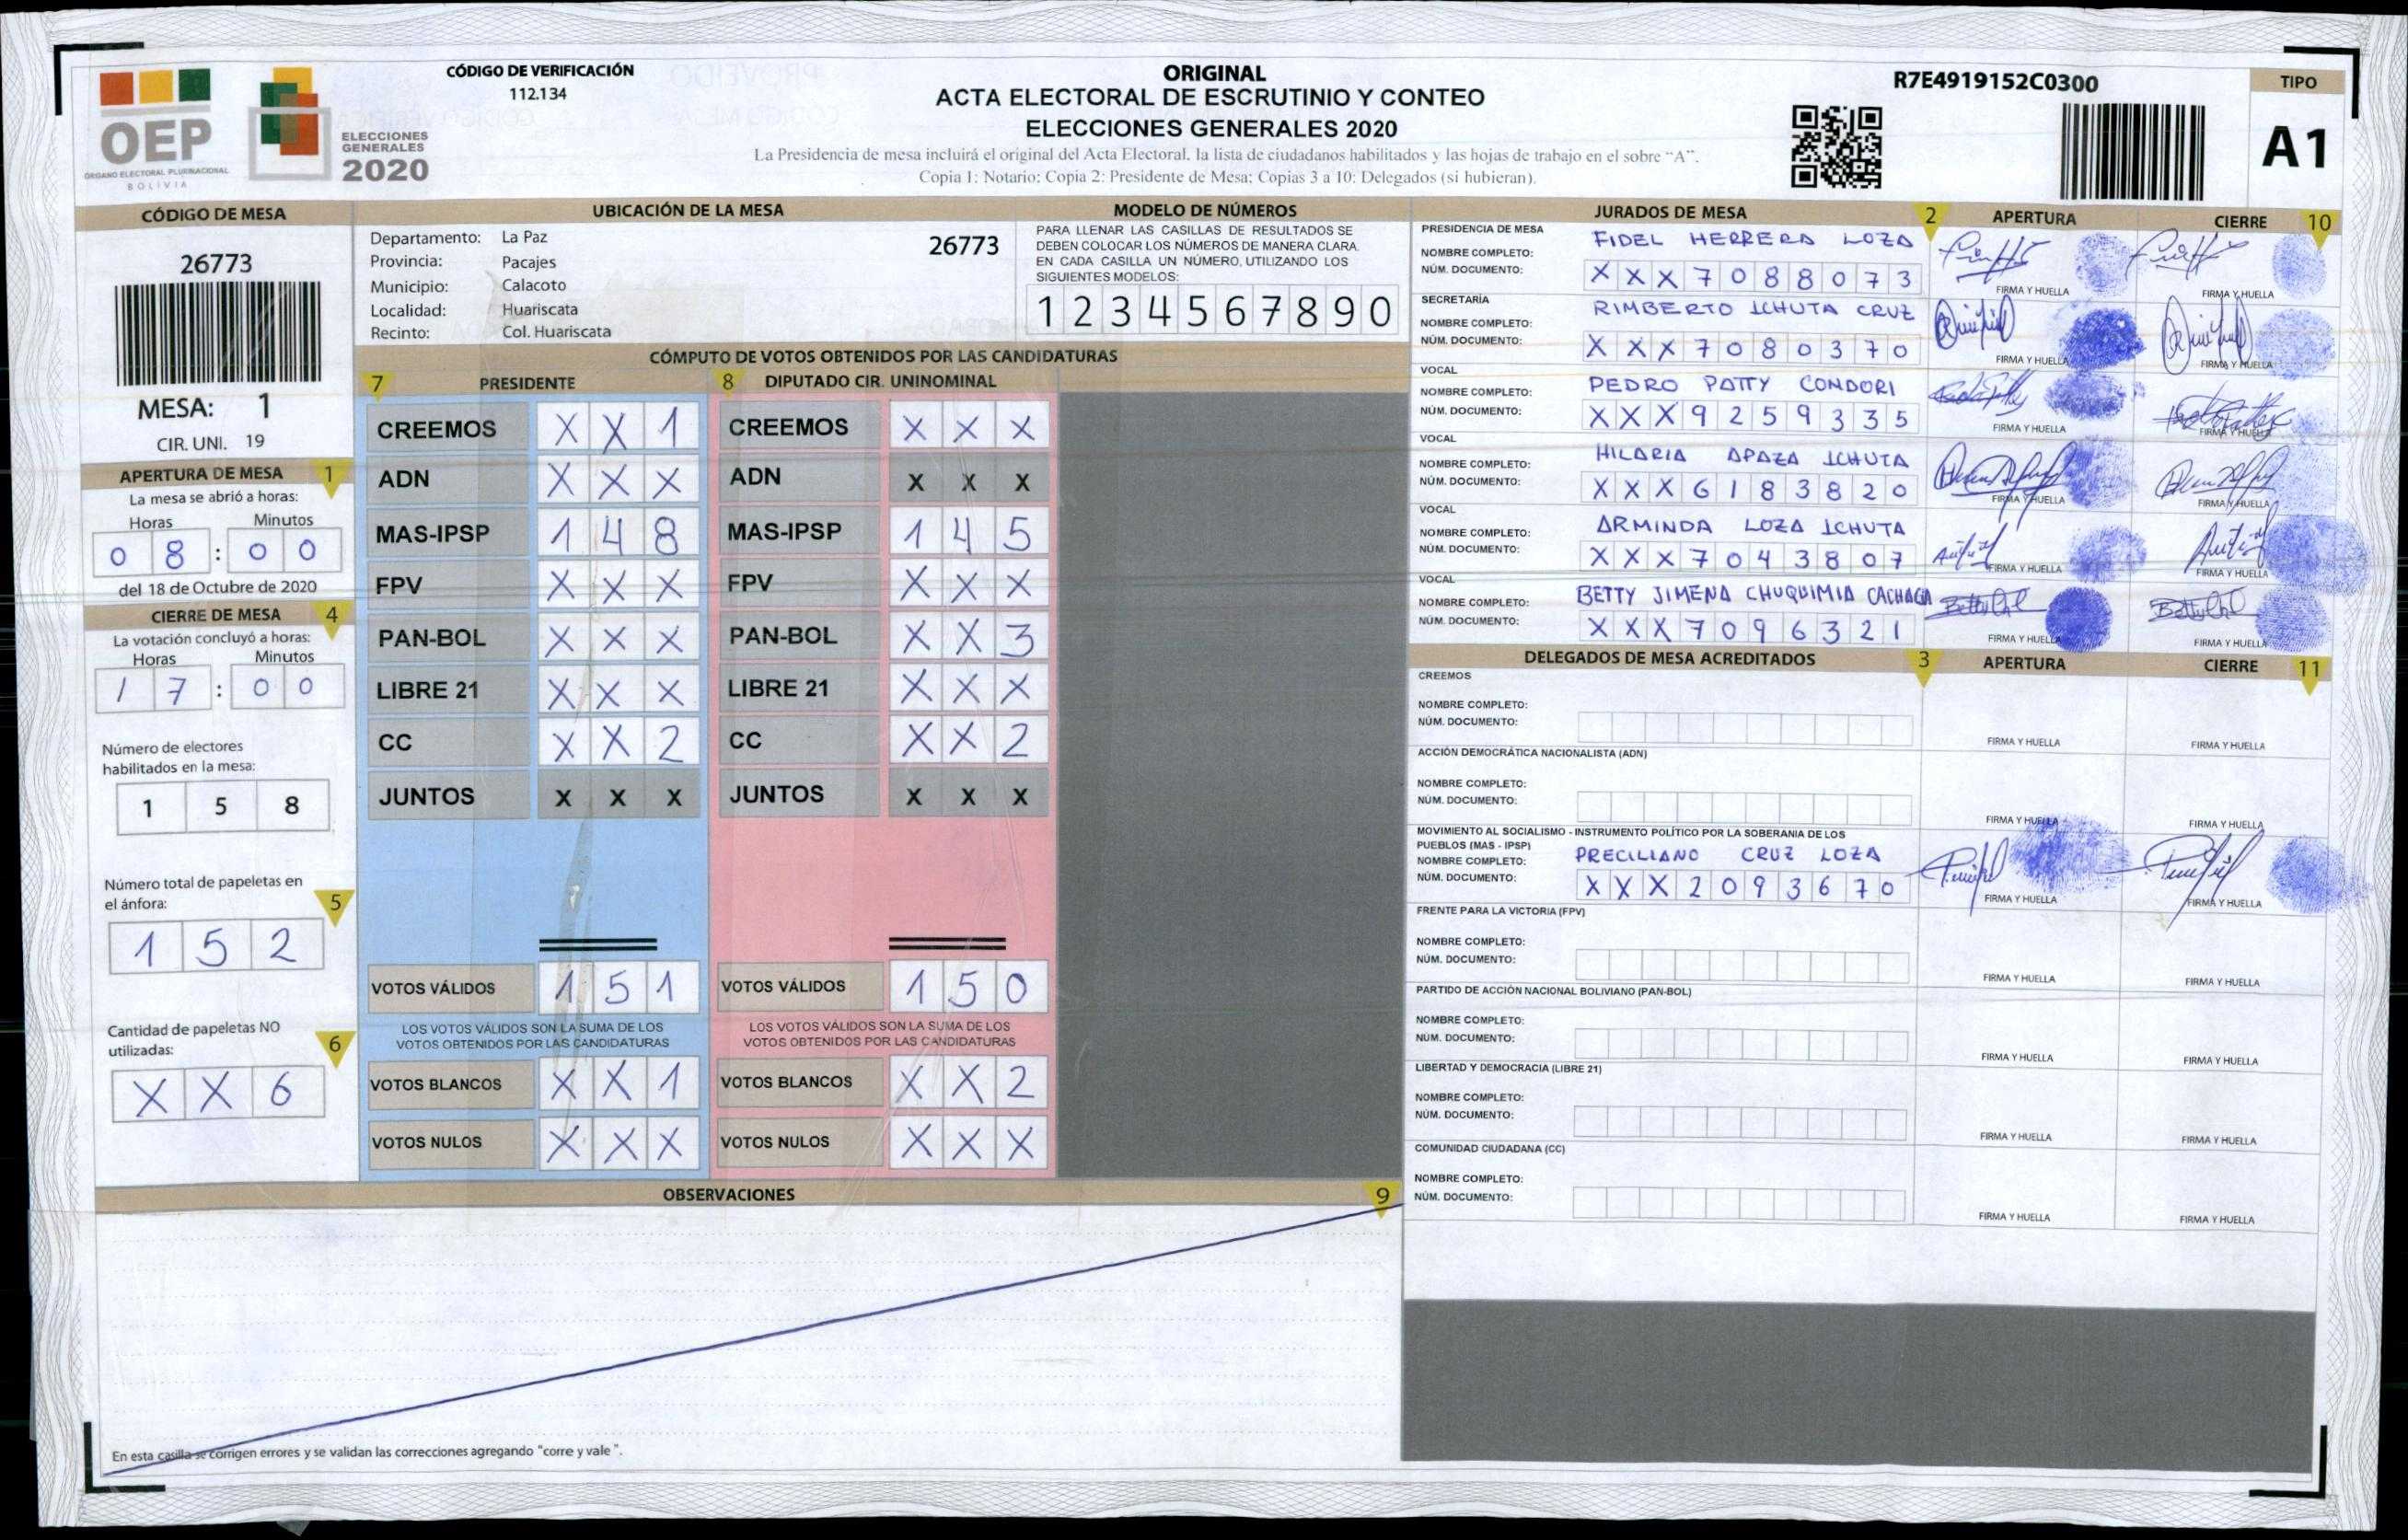 OEP
ÓRGANO ELECTORAL PLURINACIONAL
BOLIVIA
ELECCIONES
GENERALES
2020
CÓDIGO DE VERIFICACIÓN
112.134
ORIGINAL
ACTA ELECTORAL DE ESCRUTINIO Y CONTEO
ELECCIONES GENERALES 2020
La Presidencia de mesa incluirá el original del Acta Electoral, la lista de ciudadanos habilitados y las hojas de trabajo en el sobre "A".
Copia 1: Notario; Copia 2: Presidente de Mesa; Copias 3 a 10: Delegados (si hubieran).
R7E4919152C0300
TIPO
A1
CÓDIGO DE MESA
26773
MESA: 1
CIR. UNI. 19
APERTURA DE MESA 1
La mesa se abrió a horas:
Horas Minutos
0 8 : 0 0
del 18 de Octubre de 2020
CIERRE DE MESA 4
La votación concluyó a horas:
Horas Minutos
1 7 : 0 0
Número de electores
habilitados en la mesa:
1 5 8
Número total de papeletas en
el ánfora: 5
1 5 2
Cantidad de papeletas NO
utilizadas: 6
X X 6
UBICACIÓN DE LA MESA
Departamento: La Paz 26773
Provincia: Pacajes
Municipio: Calacoto
Localidad: Huariscata
Recinto: Col. Huariscata
MODELO DE NÚMEROS
PARA LLENAR LAS CASILLAS DE RESULTADOS SE
DEBEN COLOCAR LOS NÚMEROS DE MANERA CLARA.
EN CADA CASILLA UN NÚMERO, UTILIZANDO LOS
SIGUIENTES MODELOS:
1 2 3 4 5 6 7 8 9 0
CÓMPUTO DE VOTOS OBTENIDOS POR LAS CANDIDATURAS
7 PRESIDENTE 8 DIPUTADO CIR. UNINOMINAL
CREEMOS X X 1 CREEMOS X X X
ADN X X X ADN X X X
MAS-IPSP 1 4 8 MAS-IPSP 1 4 5
FPV X X X FPV X X X
PAN-BOL X X X PAN-BOL X X 3
LIBRE 21 X X X LIBRE 21 X X X
CC X X 2 CC X X 2
JUNTOS X X X JUNTOS X X X
VOTOS VÁLIDOS 1 5 1 VOTOS VÁLIDOS 1 5 0
LOS VOTOS VÁLIDOS SON LA SUMA DE LOS LOS VOTOS VÁLIDOS SON LA SUMA DE LOS
VOTOS OBTENIDOS POR LAS CANDIDATURAS VOTOS OBTENIDOS POR LAS CANDIDATURAS
VOTOS BLANCOS X X 1 VOTOS BLANCOS X X 2
VOTOS NULOS X X X VOTOS NULOS X X X
OBSERVACIONES 9
En esta casilla se corrigen errores y se validan las correcciones agregando "corre y vale".
JURADOS DE MESA 2 APERTURA CIERRE 10
PRESIDENCIA DE MESA
NOMBRE COMPLETO: FIDEL HERRERA LOZA
NÚM. DOCUMENTO: X X X 7 0 8 8 0 7 3
FIRMA Y HUELLA FIRMA Y HUELLA
SECRETARÍA
NOMBRE COMPLETO: RIMBERTO ICHUTA CRUZ
NÚM. DOCUMENTO: X X X 7 0 8 0 3 7 0
FIRMA Y HUELLA FIRMA Y HUELLA
VOCAL
NOMBRE COMPLETO: PEDRO PATTY CONDORI
NÚM. DOCUMENTO: X X X 9 2 5 9 3 3 5
FIRMA Y HUELLA FIRMA Y HUELLA
VOCAL
NOMBRE COMPLETO: HILARIA APAZA ICHUTA
NÚM. DOCUMENTO: X X X 6 1 8 3 8 2 0
FIRMA Y HUELLA FIRMA Y HUELLA
VOCAL
NOMBRE COMPLETO: ARMINDA LOZA ICHUTA
NÚM. DOCUMENTO: X X X 7 0 4 3 8 0 7
FIRMA Y HUELLA FIRMA Y HUELLA
VOCAL
NOMBRE COMPLETO: BETTY JIMENA CHUQUIMIA CACHAGA
NÚM. DOCUMENTO: X X X 7 0 9 6 3 2 1
FIRMA Y HUELLA FIRMA Y HUELLA
DELEGADOS DE MESA ACREDITADOS 3 APERTURA CIERRE 11
CREEMOS
NOMBRE COMPLETO:
NÚM. DOCUMENTO:
FIRMA Y HUELLA FIRMA Y HUELLA
ACCIÓN DEMOCRÁTICA NACIONALISTA (ADN)
NOMBRE COMPLETO:
NÚM. DOCUMENTO:
FIRMA Y HUELLA FIRMA Y HUELLA
MOVIMIENTO AL SOCIALISMO - INSTRUMENTO POLÍTICO POR LA SOBERANIA DE LOS
PUEBLOS (MAS - IPSP)
NOMBRE COMPLETO: PRECILIANO CRUZ LOZA
NÚM. DOCUMENTO: X X X 2 0 9 3 6 7 0
FIRMA Y HUELLA FIRMA Y HUELLA
FRENTE PARA LA VICTORIA (FPV)
NOMBRE COMPLETO:
NÚM. DOCUMENTO:
FIRMA Y HUELLA FIRMA Y HUELLA
PARTIDO DE ACCIÓN NACIONAL BOLIVIANO (PAN-BOL)
NOMBRE COMPLETO:
NÚM. DOCUMENTO:
FIRMA Y HUELLA FIRMA Y HUELLA
LIBERTAD Y DEMOCRACIA (LIBRE 21)
NOMBRE COMPLETO:
NÚM. DOCUMENTO:
FIRMA Y HUELLA FIRMA Y HUELLA
COMUNIDAD CIUDADANA (CC)
NOMBRE COMPLETO:
NÚM. DOCUMENTO:
FIRMA Y HUELLA FIRMA Y HUELLA